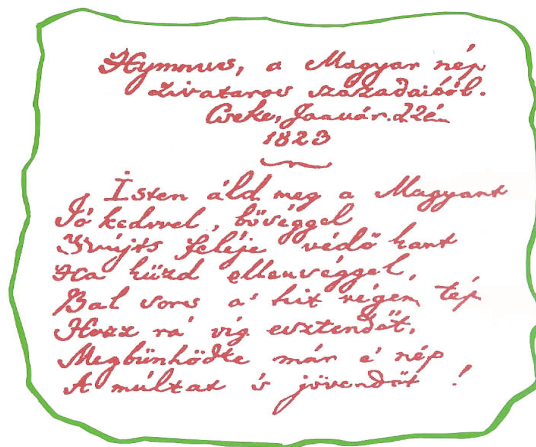 Hymnus, a Magyar nép
zivataros századaiból.
Cseke, Január. 22én
1823
Isten áld meg a Magyart
Jó kedvvel, bőséggel
Nyújts feléje védő kart
Ha küzd ellenséggel,
Bal sors a' kit régen tép
Hozz rá víg esztendőt,
Megbünhödte már é nép
A múltat is jövendőt !